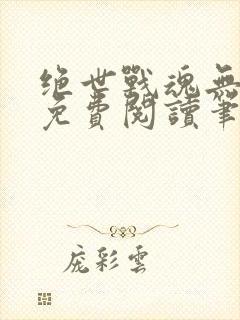 绝世戰魂無
免費閱讀筆
庞彩雲